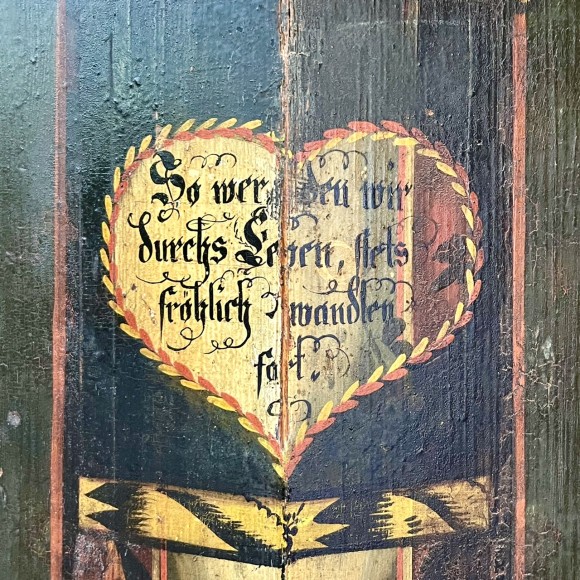 So werden wir
durchs Leben, stets
fröhlich wandlen
fort.